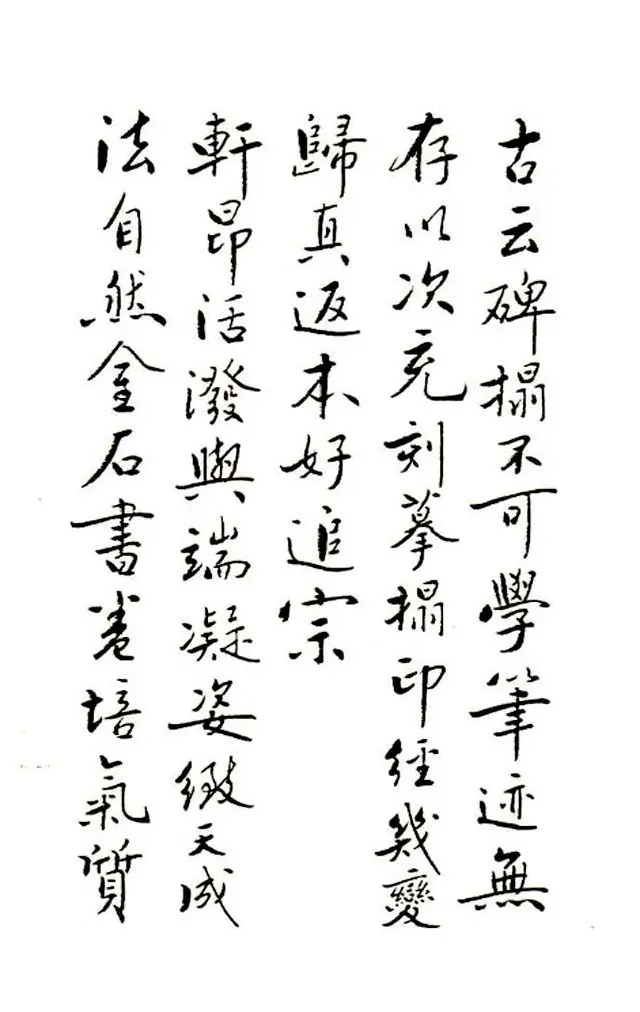 古云碑榻不可學筆迹無
存以次充刻摹榻印經幾變
歸真返本好追宗
軒昂活潑與端凝姿緻天成
法自然金石書卷培氣质